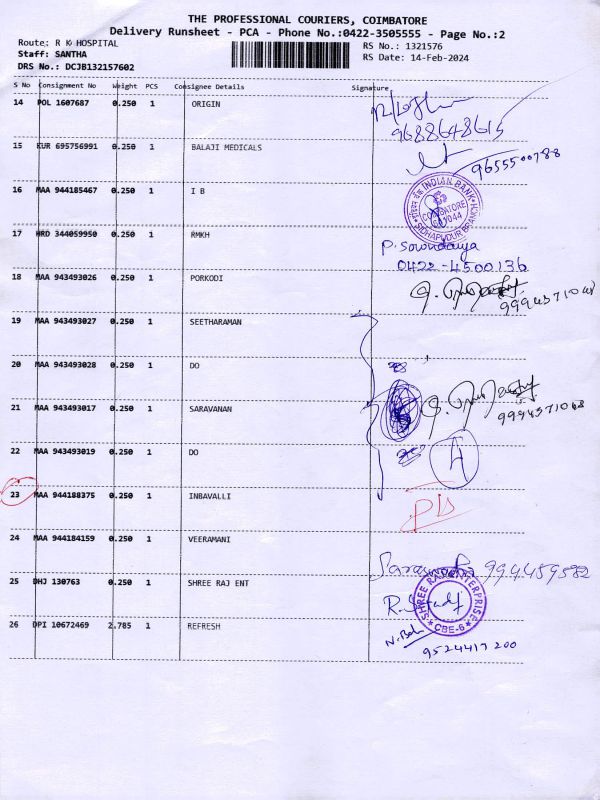 THE PROFESSIONAL COURIERS, COIMBATORE
Delivery Runsheet - PCA - Phone No.:0422-3505555 - Page No.:2
Route: R K HOSPITAL
RS No.: 1321576
Staff: SANTHA
RS Date: 14-Feb-2024
DRS No.: DCJB132157602
S No Consignment No Weight PCS Consignee Details Signature
14 POL 1607687 0.250 1 ORIGIN
9688648615
15 KUR 695756991 0.250 1 BALAJI MEDICALS
9655500788
16 MAA 944185467 0.250 1 I B
INDIAN BANK
COIMBATORE
641044
SIDHAPUDUR BRANCH
17 HRD 344059950 0.250 1 RMKH
P. Sowndarya
0422-4500136
18 MAA 943493026 0.250 1 PORKODI
9994571068
19 MAA 943493027 0.250 1 SEETHARAMAN
20 MAA 943493028 0.250 1 DO
21 MAA 943493017 0.250 1 SARAVANAN
9994571068
22 MAA 943493019 0.250 1 DO
A
23 MAA 944188375 0.250 1 INBAVALLI
24 MAA 944184159 0.250 1 VEERAMANI
25 DHJ 130763 0.250 1 SHREE RAJ ENT
SHREE RAJ ENTERPRISE
CBE-6
26 DPI 10672469 2.785 1 REFRESH
9524417200